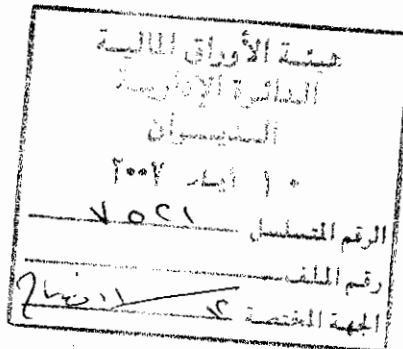 هيئة الأوراق المالية
الدائرة الإدارية
الديــــوان
١٠ أيار ٢٠٠٧
الرقم المتسلسل ٧٥٢١
رقم الملف
الجهة المختصة